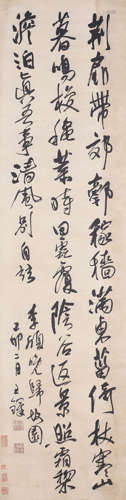 荊扉帶郊郭稼穡滿東菑倚杖寒山
暮鳴梭穐葉時回雲覆陰谷返景照霜梨
澹泊真吾事清風別自茲
李頎晚歸故園
己卯二月王鐸